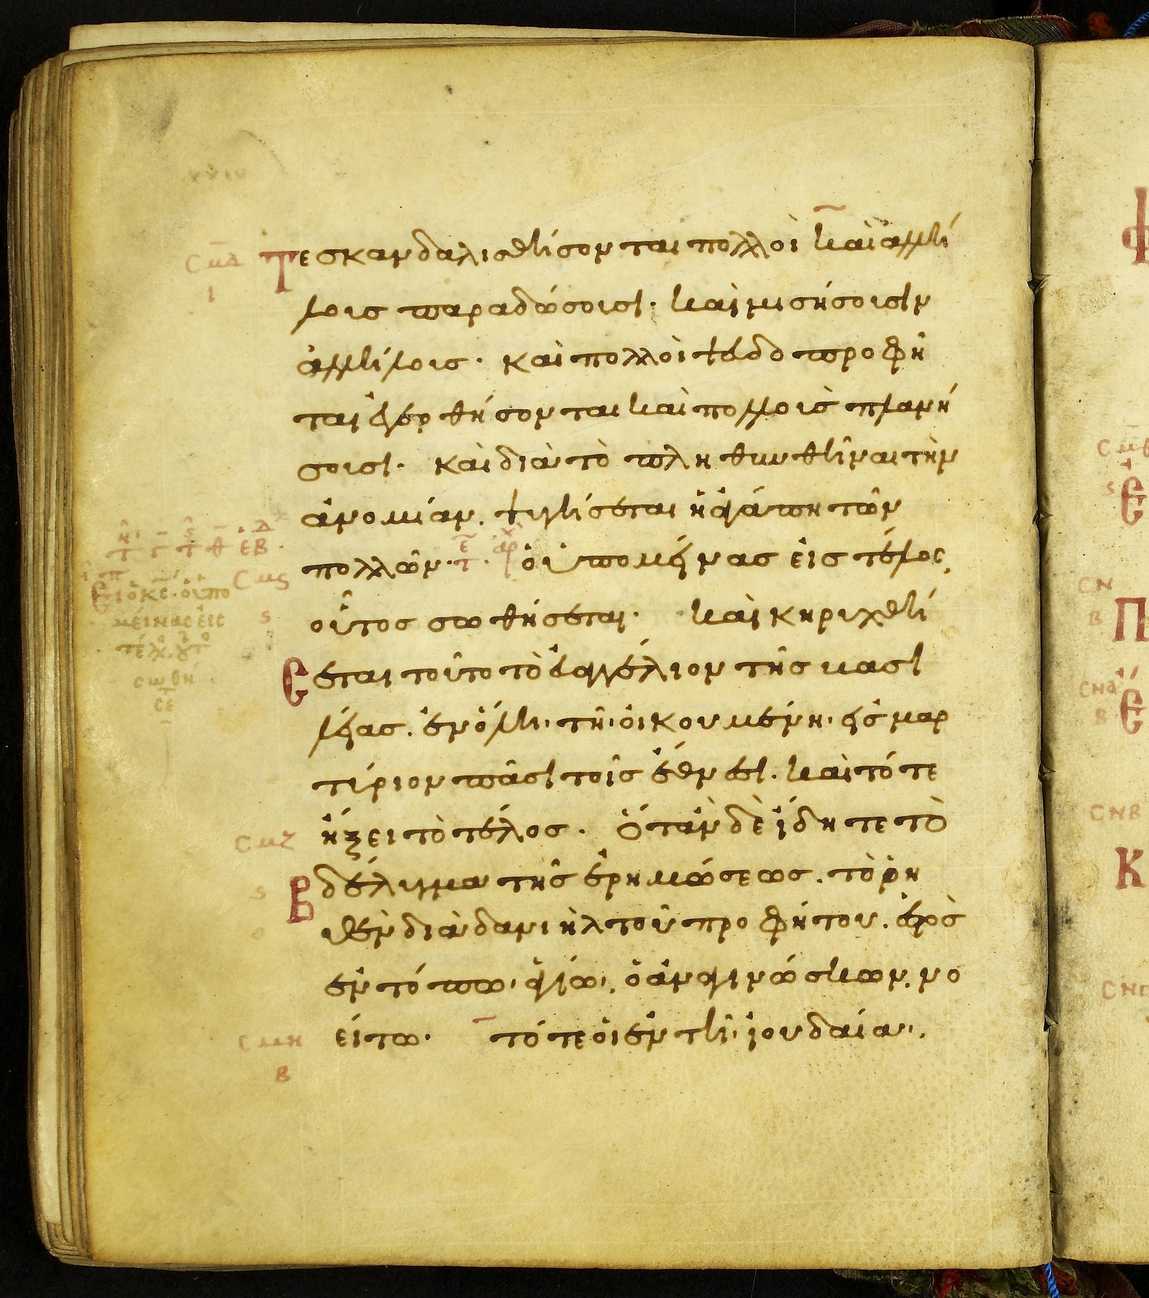 τε σκανδαλισθήσονται πολλοὶ καὶ ἀλλή
λους παραδώσουσι· καὶ μισήσουσιν
ἀλλήλους· καὶ πολλοὶ ψευδοπροφῆ
ται ἐγερθήσονται καὶ πολλοὺς πλανή
σουσι· καὶ διὰ τὸ πληθυνθῆναι τὴν
ἀνομίαν, ψυγήσεται ἡ ἀγάπη τῶν
πολλῶν· ὁ ὑπομείνας εἰς τέλος,
οὗτος σωθήσεται· καὶ κηρυχθή
σεται τοῦτο τὸ εὐαγγέλιον τῆς βασι
λείας. ἐν ὅλῃ τῇ οἰκουμένῃ, εἰς μαρ
τύριον πᾶσι τοῖς ἔθνεσι. καὶ τότε
ἥξει τὸ τέλος. ὅταν δὲ ἴδητε τὸ
βδέλυγμα τῆς ἐρημώσεως. τὸ ῥη
θὲν διὰ δανιὴλ τοῦ προφήτου. ἑστὸς
ἐν τόπω ἁγίω, ὁ ἀναγινώσκων, νο
είτω· τότε οἱ ἐν τῆ ἰουδαία,
σμδ
ι
σμς
ς
σμζ
ς
σμη
β
εἶπεν ὁ κς· ὁ ὑπο
μείνας εἰς